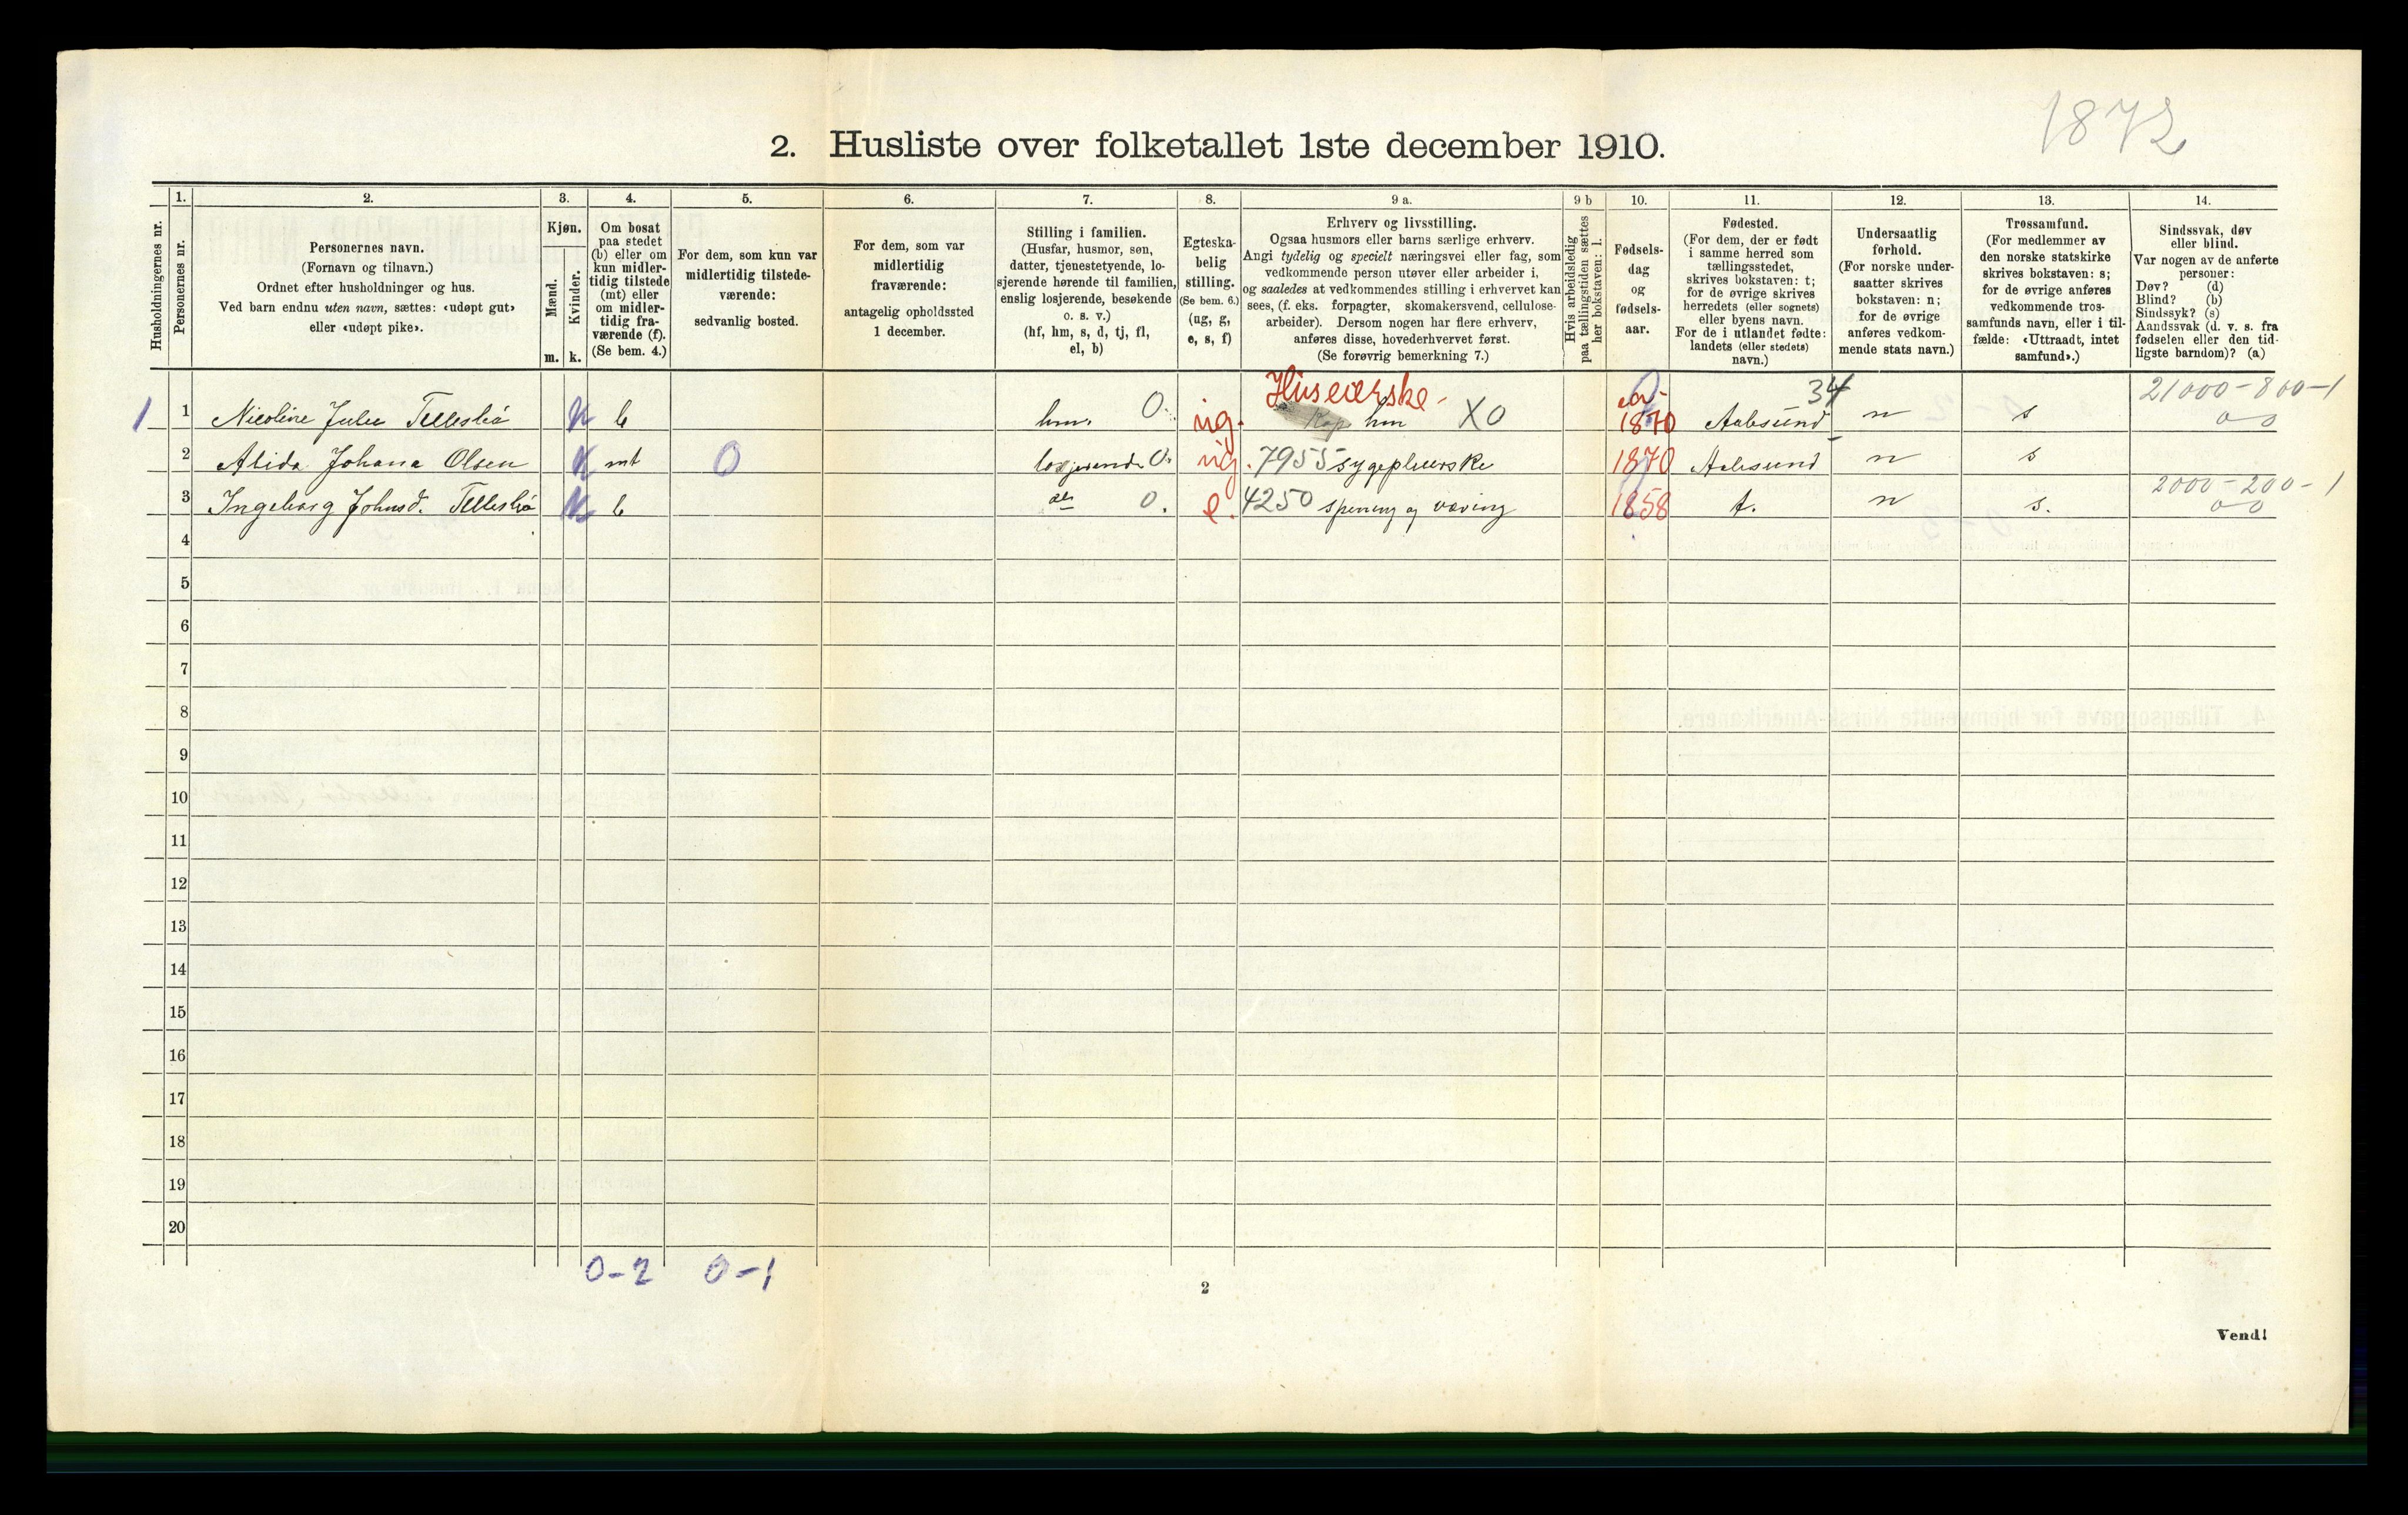 1872
2. Husliste over folketallet 1ste december 1910.
Husholdningernes nr.
1.
Personernes nr.
2.
Personernes navn.
(Fornavn og tilnavn.)
Ordnet efter husholdninger og hus.
Ved barn endnu uten navn, sættes: «udøpt gut»
eller «udøpt pike».
3.
Kjøn.
Mænd.
Kvinder.
m. k.
4.
Om bosat
paa stedet
(b) eller om
kun midler-
tidig tilstede
(mt) eller
om midler-
tidig fra-
værende (f).
(Se bem. 4.)
5.
For dem, som kun var
midlertidig tilstede-
værende:
sedvanlig bosted.
6.
For dem, som var
midlertidig
fraværende:
antagelig opholdssted
1 december.
7.
Stilling i familien.
(Husfar, husmor, søn,
datter, tjenestetyende, lo-
sjerende hørende til familien,
enslig losjerende, besøkende
o. s. v.)
(hf, hm, s, d, tj, fl,
el, b)
8.
Egteska-
belig
stilling.
(Se bem. 6.)
(ug, g,
e, s, f)
9 a.
Erhverv og livsstilling.
Ogsaa husmors eller barns særlige erhverv.
Angi tydelig og specielt næringsvei eller fag, som
vedkommende person utøver eller arbeider i,
og saaledes at vedkommendes stilling i erhvervet kan
sees, (f. eks. forpagter, skomakersvend, cellulose-
arbeider). Dersom nogen har flere erhverv,
anføres disse, hovederhvervet først.
(Se forøvrig bemerkning 7.)
9 b
Hvis arbeidsledig
paa tællingstiden sættes
her bokstaven: l.
10.
Fødsels-
dag
og
fødsels-
aar.
11.
Fødested.
(For dem, der er født
i samme herred som
tællingsstedet,
skrives bokstaven: t;
for de øvrige skrives
herredets (eller sognets)
eller byens navn.
For de i utlandet fødte:
landets (eller stedets)
navn.)
12.
Undersaatlig
forhold.
(For norske under-
saatter skrives
bokstaven: n;
for de øvrige
anføres vedkom-
mende stats navn.)
13.
Trossamfund.
(For medlemmer av
den norske statskirke
skrives bokstaven: s;
for de øvrige anføres
vedkommende tros-
samfunds navn, eller i til-
fælde: «Uttraadt, intet
samfund».)
14.
Sindssvak, døv
eller blind.
Var nogen av de anførte
personer:
Døv? (d)
Blind? (b)
Sindssyk? (s)
Aandssvak (d. v. s. fra
fødselen eller den tid-
ligste barndom)? (a)
Huseierske 34 21000-800-1
1 1 Nicoline Julie Telleslió K b hm. 0. ug. hm X0 1870 Aalesund n s 0 0
2 Alida Johana Olsen K mt 0 losjerende 0. ug. 7955 sygepleierske 1870 Aalesund n s
2000-200-1
3 Ingeborg Johnsd. Telleslió K b 0. e. 4250 spening og væving 1858 t. n s. 0 0
4
5
6
7
8
9
10
11
12
13
14
15
16
17
18
19
20
0-2 0-1
2
Vend!